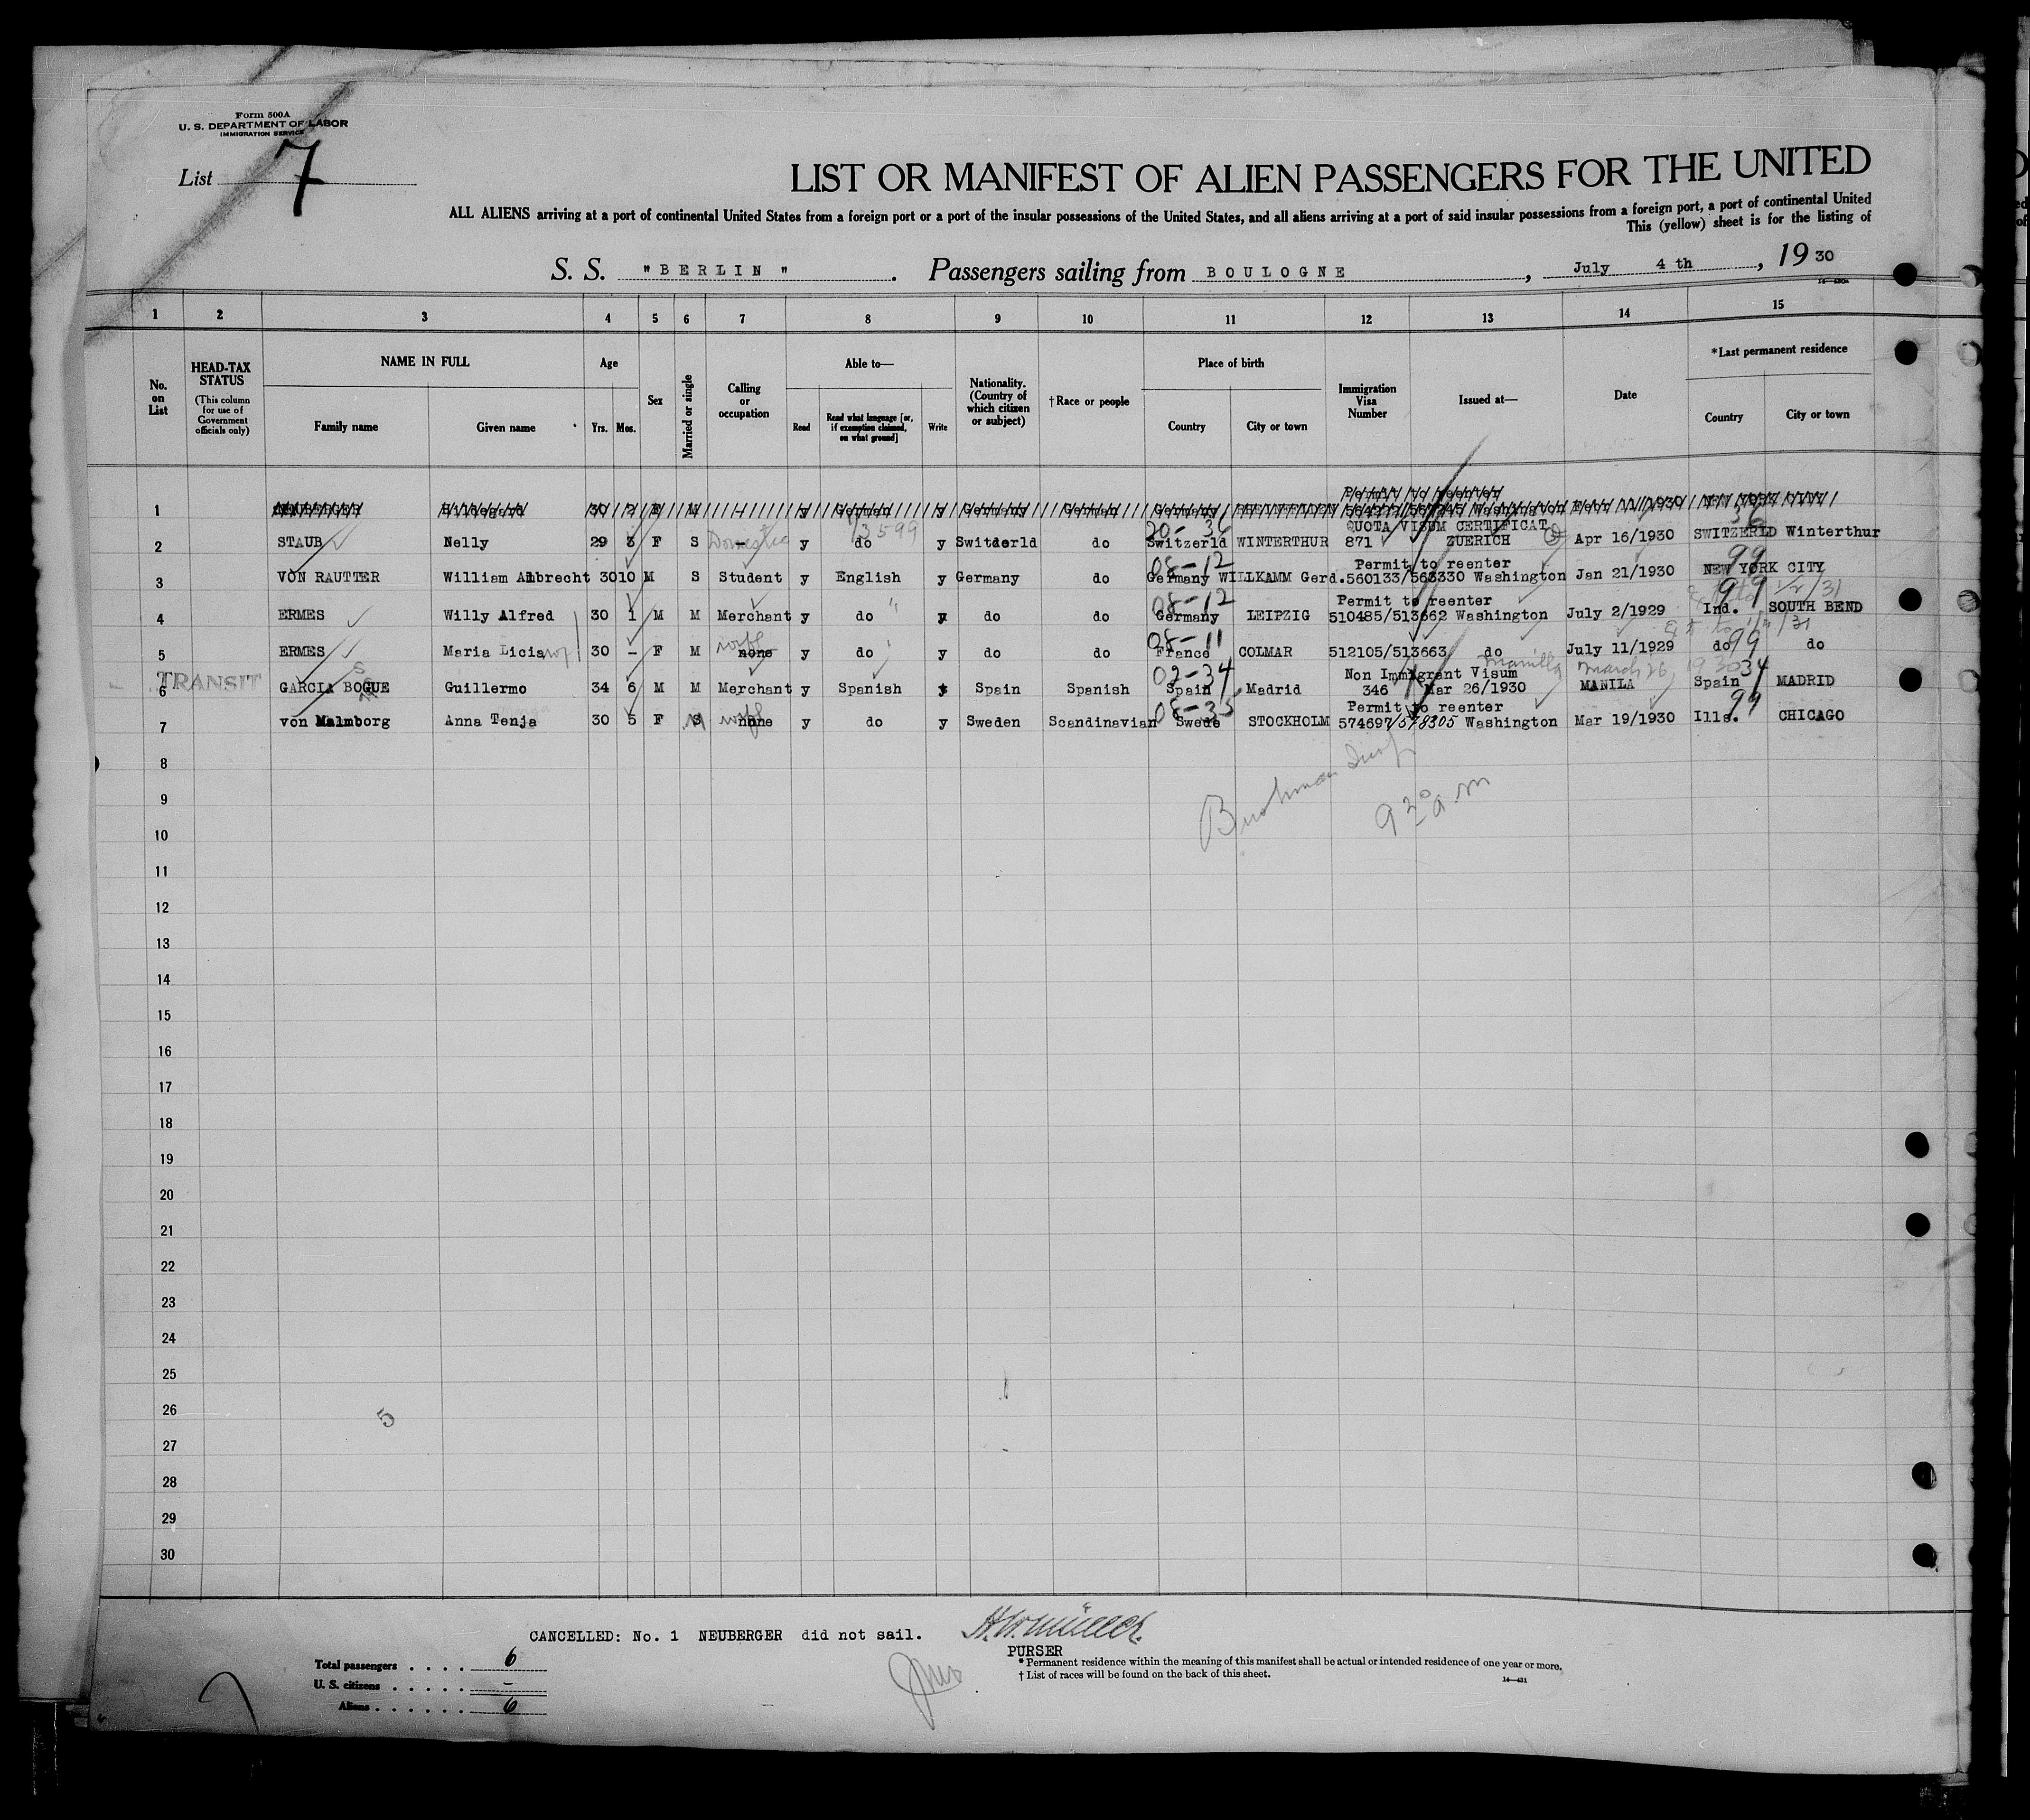 Form 500A
U. S. DEPARTMENT OF LABOR
IMMIGRATION SERVICE
List 7
LIST OR MANIFEST OF ALIEN PASSENGERS FOR THE UNITED
ALL ALIENS arriving at a port of continental United States from a foreign port or a port of the insular possessions of the United States, and all aliens arriving at a port of said insular possessions from a foreign port, a port of continental United
This (yellow) sheet is for the listing of
S. S. "BERLIN". Passengers sailing from BOULOGNE, July 4 th, 19 30
1 2 3 4 5 6 7 8 9 10 11 12 13 14 15
No. on List
HEAD-TAX STATUS
(This column for use of Government officials only)
NAME IN FULL
Family name
Given name
Age
Yrs. Mos.
Sex
Married or single
Calling or occupation
Able to—
Read
Read what language [or, if exemption claimed, on what ground]
Write
Nationality. (Country of which citizen or subject)
†Race or people
Place of birth
Country
City or town
Immigration Visa Number
Issued at—
Date
*Last permanent residence
Country
City or town
Permit to reenter
1 NEUBERGER Hildegard 30 F M y German y Germany German Germany Washington 11/1930 NEW YORK CITY
QUOTA VISUM CERTIFICAT
20-36 36
2 STAUB Nelly 29 F S Domestic y do y Switderld do Switzerld WINTERTHUR 871 ZUERICH Apr 16/1930 SWITZERLD Winterthur
08-12 Permit to reenter 99
3 VON RAUTTER William Albrecht 30 10 M S Student y English y Germany do Germany WILLKAMM Gerd. 560133/563330 Washington Jan 21/1930 NEW YORK CITY
08-12 Permit to reenter 99 1/2/31
4 ERMES Willy Alfred 30 1 M M Merchant y do y do do Germany LEIPZIG 510485/513662 Washington July 2/1929 Ind. SOUTH BEND
08-11 99
5 ERMES Maria Licia 30 - F M none wife y do y do do France COLMAR 512105/513663 do July 11/1929 do do
02-34 Non Immigrant Visum Manilla March 26 1930 34
TRANSIT
6 GARCIA BOGUE Guillermo 34 6 M M Merchant y Spanish y Spain Spanish Spain Madrid 346 Mar 26/1930 MANILA Spain MADRID
08-35 Permit to reenter 99
7 von Malmborg Anna Tenja 30 5 F S M none wife y do y Sweden Scandinavian Swede STOCKHOLM 574697/578305 Washington Mar 19/1930 Ills. CHICAGO
8
9
9 30 a m
10
11
12
13
14
15
16
17
18
19
20
21
22
23
24
25
26
5
27
28
29
30
CANCELLED: No. 1 NEUBERGER did not sail.
PURSER
Total passengers . . . . 6
U. S. citizens . . . . . -
Aliens . . . . . . 6
* Permanent residence within the meaning of this manifest shall be actual or intended residence of one year or more.
† List of races will be found on the back of this sheet.
14—431